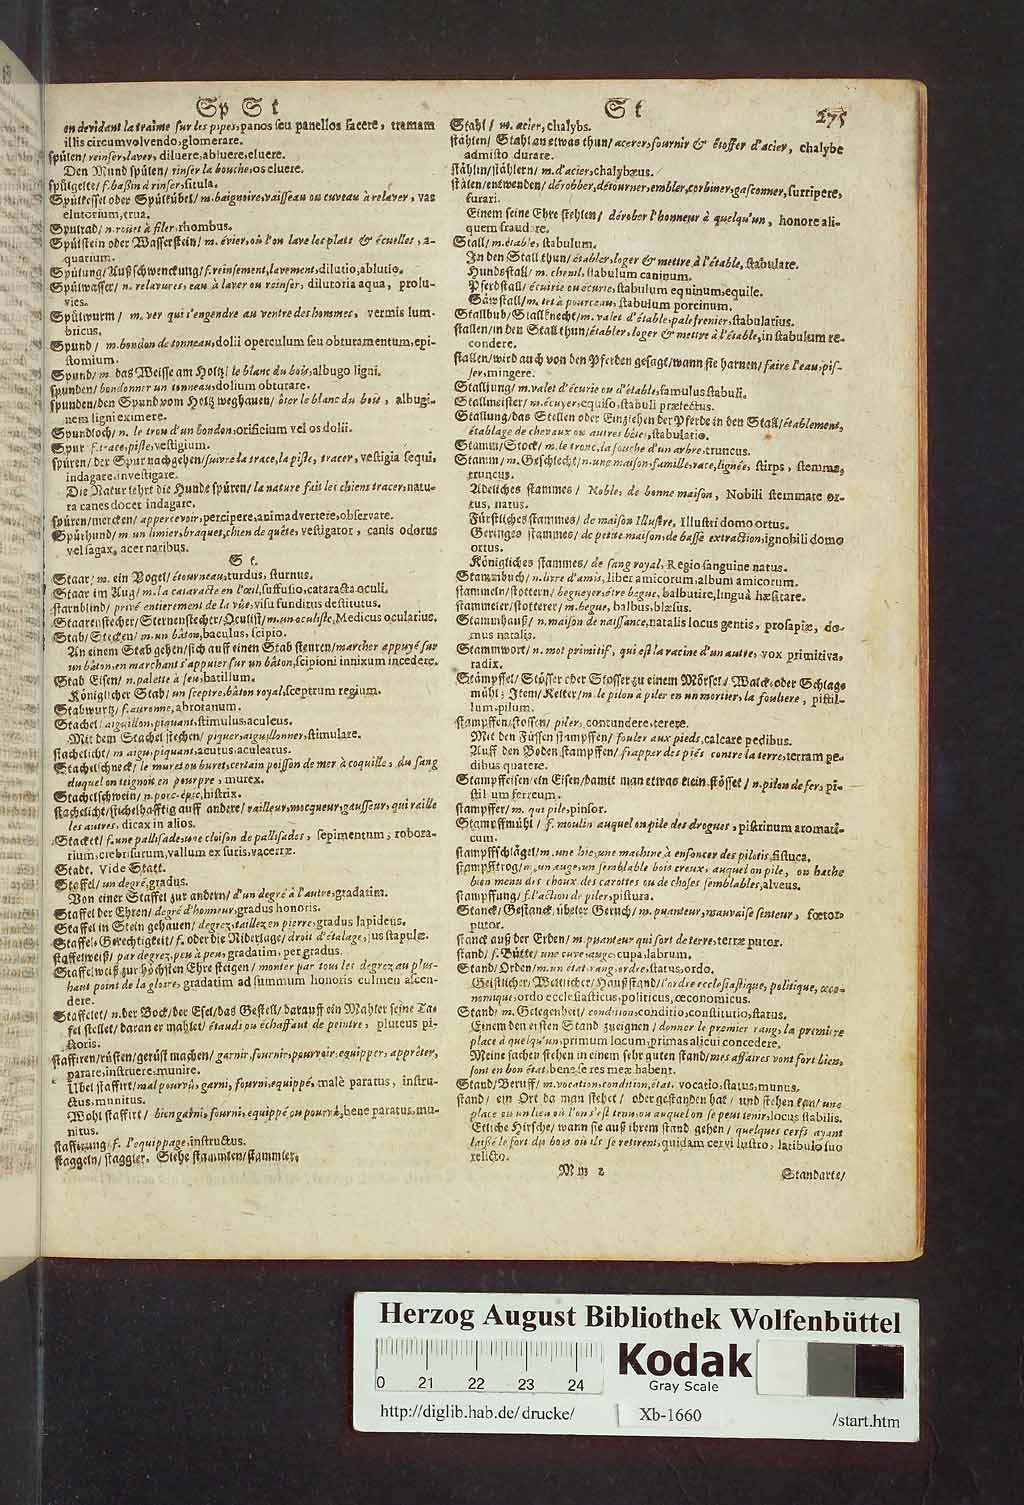 Sp St
en devidant la traîme sur les pipes, panos seu panellos facere, tramam
illis circumvolvendo, glomerare.
spülen/ reinser, laver, diluere, abluere, eluere.
Den Mund spülen/ rinser la bouche, os eluere.
spülgelte/ f. baßin à rinser, situla.
Spülkessel oder Spülkübel/ m. baignoire, vaisseau ou cuveau à relaver, vas
elutorium, trua.
Spulrad/ n. roüet à filer, rhombus.
Spülstein oder Wasserstein/ m. évier, où l'on lave les plats & écuelles, a-
quarium.
Spülung/ Außschwenckung/ f. reinsement, lavement, dilutio, ablutio.
Spülwasser/ n. relavures, eau à laver ou reinser, dilutoria aqua, prolu-
vies.
Spulwurm/ m. ver qui s'engendre au ventre des hommes, vermis lum-
bricus.
Spund/ m. bondon de tonneau, dolii operculum seu obturamentum, epi-
stomium.
Spund/ m. das Weisse am Holtz/ le blanc du bois, albugo ligni.
spunden/ bondonner un tonneau, dolium obturare.
spunden/ den Spund vom Holtz weghauen/ ôter le blanc du bois, albugi-
nem ligni eximere.
Spundloch/ n. le trou d'un bondon, orificium vel os dolii.
Spur f. trace, piste, vestigium.
spüren/ der Spur nachgehen/ suivre la trace, la piste, tracer, vestigia sequi,
indagare, investigare.
Die Natur lehrt die Hunde spüren/ la nature fait les chiens tracer, natu-
ra canes docet indagare.
spüren/ mercken/ appercevoir, percipere, animadvertere, observare.
Spürhund/ m. un limier, braquet, chien de quête, vestigator, canis odorus
vel sagax, acer naribus.
St.
Staar/ m. ein Vogel/ étourneau, turdus, sturnus.
Staar im Aug/ m. la cataracte en l'œil, suffusio, cataracta oculi.
starnblind/ privé entierement de la vûe, visu funditus destitutus.
Staarenstecher/ Sternenstecher/ Oculist/ m. un oculiste, Medicus ocularius.
Stab/ Stecken/ m. un bâton, baculus, scipio.
An einem Stab gehen/ sich auff einen Stab steuren/ marcher appuyé sur
un bâton, en marchant s'appuier sur un bâton, scipioni innixum incedere.
Stab Eisen/ n. palette à feu, batillum.
Königlicher Stab/ un sceptre, bâton royal, sceptrum regium.
Stabwurtz/ f. auronne, abrotanum.
Stachel/ aiguillon, piquant, stimulus, aculeus.
Mit dem Stachel stechen/ piquer, aiguillonner, stimulare.
stachelicht/ m aigu, piquant, acutus, aculeatus.
Stachelschneck/ le mureton buret, certain poisson de mer à coquille, du sang
duquel on teignoit en pourpre, murex.
Stachelschwein/ n. porc-épic, histrix.
stachelicht/ stichelhafftig auff andere/ railleur, mocqueur, gausseur, qui raille
les autres, dicax in alios.
Stacket/ f. une pallisade, une cloison de pallisades, sepimentum, robora-
rium, crebrisurum, vallum ex suris, vacerræ.
Stadt, Vide Statt.
Staffel/ un degré, gradus.
Von einer Staffel zur andern/ d'un degré à l'autre, gradatim.
Staffel der Ehren/ degré d'honneur, gradus honoris.
Staffel in Stein gehauen/ degrez, taillez en pierre, gradus lapideus.
Staffel-Gerechtigkeit/ f. oder die Niderlage/ droit d'étalage, jus stapulæ.
staffelweiß/ par degrez, peu à peu, gradatim, per gradus.
Staffelweiß zur höchsten Ehre steigen/ monter par tous les degrez au plus-
haut point de la gloire, gradatim ad summum honoris culmen ascen-
dere.
Staffelet/ n. der Bock/ der Esel/ das Gestell/ darauff ein Mahler seine Ta-
fel stellet/ daran er mahlet/ étaudi ou échaffaut de peintre, pluteus pi-
ctoris.
staffiren/ rüsten/ gerüst machen/ garnir, fournir, pourvoir, equipper, apprêter,
parare, instruere, munire.
Übel staffirt/ mal pourvû, garni, fourni, equippé, malè paratus, instru-
ctus, munitus.
Wohl staffirt/ bien garni, fourni, equippé ou pourvû, bene paratus, mu-
nitus.
staffirung/ f. l'equippage, instructus.
staggeln/ staggler. Siehe stammlen/ stammler.
St 275
Stahl/ m. acier, chalybs.
stählen/ Stahl an etwas thun/ acerer, fournir & étoffer d'acier, chalybe
admisto durare.
stählin/ stählern/ m. d'acier, chalybæus.
stälen/ entwenden/ dérobber, détourner, embler, corbiner, gasconner, surripere,
furari.
Einem seine Ehre stehlen/ dérober l'honneur à quelqu'un, honore ali-
quem fraudare.
Stall/ m. étable, stabulum.
In den Stall thun/ établer, loger & mettre à l'étable, stabulare.
Hundsstall/ m. chenil, stabulum caninum.
Pferdstall/ écuirie ou écurie, stabulum equinum, equile.
Säwstall/ m. tet à pourceau, stabulum porcinum.
Stallbub/ Stallknecht/ m. valet d'étable, palefrenier, stabularius.
stallen/ in den Stall thun/ établer, loger & mettre à l'étable, in stabulum re-
condere.
stallen/ wird auch von den Pferden gesagt/ wann sie harnen/ faire l'eau, pis-
ser, mingere.
Stalljung/ m. valet d'écurie ou d'étable, famulus stabuli.
Stallmeister/ m. écuyer, equiso, stabuli præfectus.
Stallung/ das Stellen oder Einziehen der Pferde in den Stall/ établement,
établage de chevaux ou autres bêtes, stabulatio.
Stamm/ Stock/ m. le tronc, la souche d'un arbre, truncus.
Stamm/ m. Geschlecht/ n. une maison, famille, race, lignée, stirps, stemma,
truncus.
Adeliches stammes/ Noble, de bonne maison, Nobili stemmate or-
tus, natus.
Fürstliches stammes/ de maison Illustre, Illustri domo ortus.
Geringes stammes/ de petite maison, de basse extraction, ignobili domo
ortus.
Königliches stammes/ de sang royal, Regio sanguine natus.
Stammbuch/ n. livre d'amis, liber amicorum, album amicorum.
stammeln/ stottern/ begueyer, être begue, balbutire, linguâ hæsitare.
stammeler/ stotterer/ m. begue, balbus, blæsus.
Stammhauß/ n. maison de naissance, natalis locus gentis, prosapiæ, do-
mus natalis.
Stammwort/ n. mot primitif, qui est la racine d'un autre, vox primitiva,
radix.
Stämpffel/ Stösser oder Stosser zu einem Mörsel/ Walck- oder Schlag-
mühl; Item/ Kelter/ m. le pilon à piler en un mortier, la fouliere, pistil-
lum, pilum.
stampffen/ stossen/ piler, contundere, terere.
Mit den Füssen stampffen/ fouler aux pieds, calcare pedibus.
Auff den Boden stampffen/ frapper des piés contre la terre, terram pe-
dibus quatere.
Stampffeisen/ ein Eisen/ damit man etwas klein stösset/ n. pilon de fer, pi-
stillum ferreum.
stampffer/ m. qui pile, pinsor.
Stampffmühl/ f. moulin auquel on pile des drogues, pistrinum aromati-
cum.
stampffschlägel/ m. une hie, une machine à enfoncer des pilotis, fistuca.
stampfftrog/ m. un auge, un semblable bois creux, auquel on pile, ou hache
bien menu des choux des carottes ou de choses semblables, alveus.
stampffung/ f. l'action de piler, pistura.
Stanck/ Gestanck/ übeler Geruch/ m. puanteur, mauvaise senteur, fœtor,
putor.
stanck auß der Erden/ m. puanteur qui sort de terre, terræ putor.
stand/ f. Bütte/ une cuve, auge, cupa, labrum.
Stand/ Orden/ m. un état, rang, ordre, status, ordo.
Geistlicher/ Weltlicher/ Haußstand/ l'ordre ecclesiastique, politique, œco-
nomique, ordo ecclesiasticus, politicus, œconomicus.
Stand/ m. Gelegenheit/ condition, conditio, constitutio, status.
Einem den ersten Stand zueignen/ donner le premier rang, la premiere
place à quelqu'un, primum locum, primas alicui concedere.
Meine sachen stehen in einem sehr guten stand/ mes affaires vont fort bien,
sont en bon état, bene se res meæ habent.
Stand/ Beruff/ m. vocation, condition, état, vocatio, status, munus.
stand/ ein Ort da man stehet/ oder gestanden hat/ und stehen kan/ une
place ou un lieu où l'on s'est tenu, ou auquel on se peut tenir, locus stabilis.
Etliche Hirsche/ wann sie auß ihrem stand gehen/ quelques cerfs ayant
laissé le fort du bois où ils se retirent, quidam cervi lustro, latibulo suo
relicto.
Mm 2 Standarte/
Herzog August Bibliothek Wolfenbüttel
0 21 22 23 24
Kodak
Gray Scale
http://diglib.hab.de/drucke/ Xb-1660 /start.htm